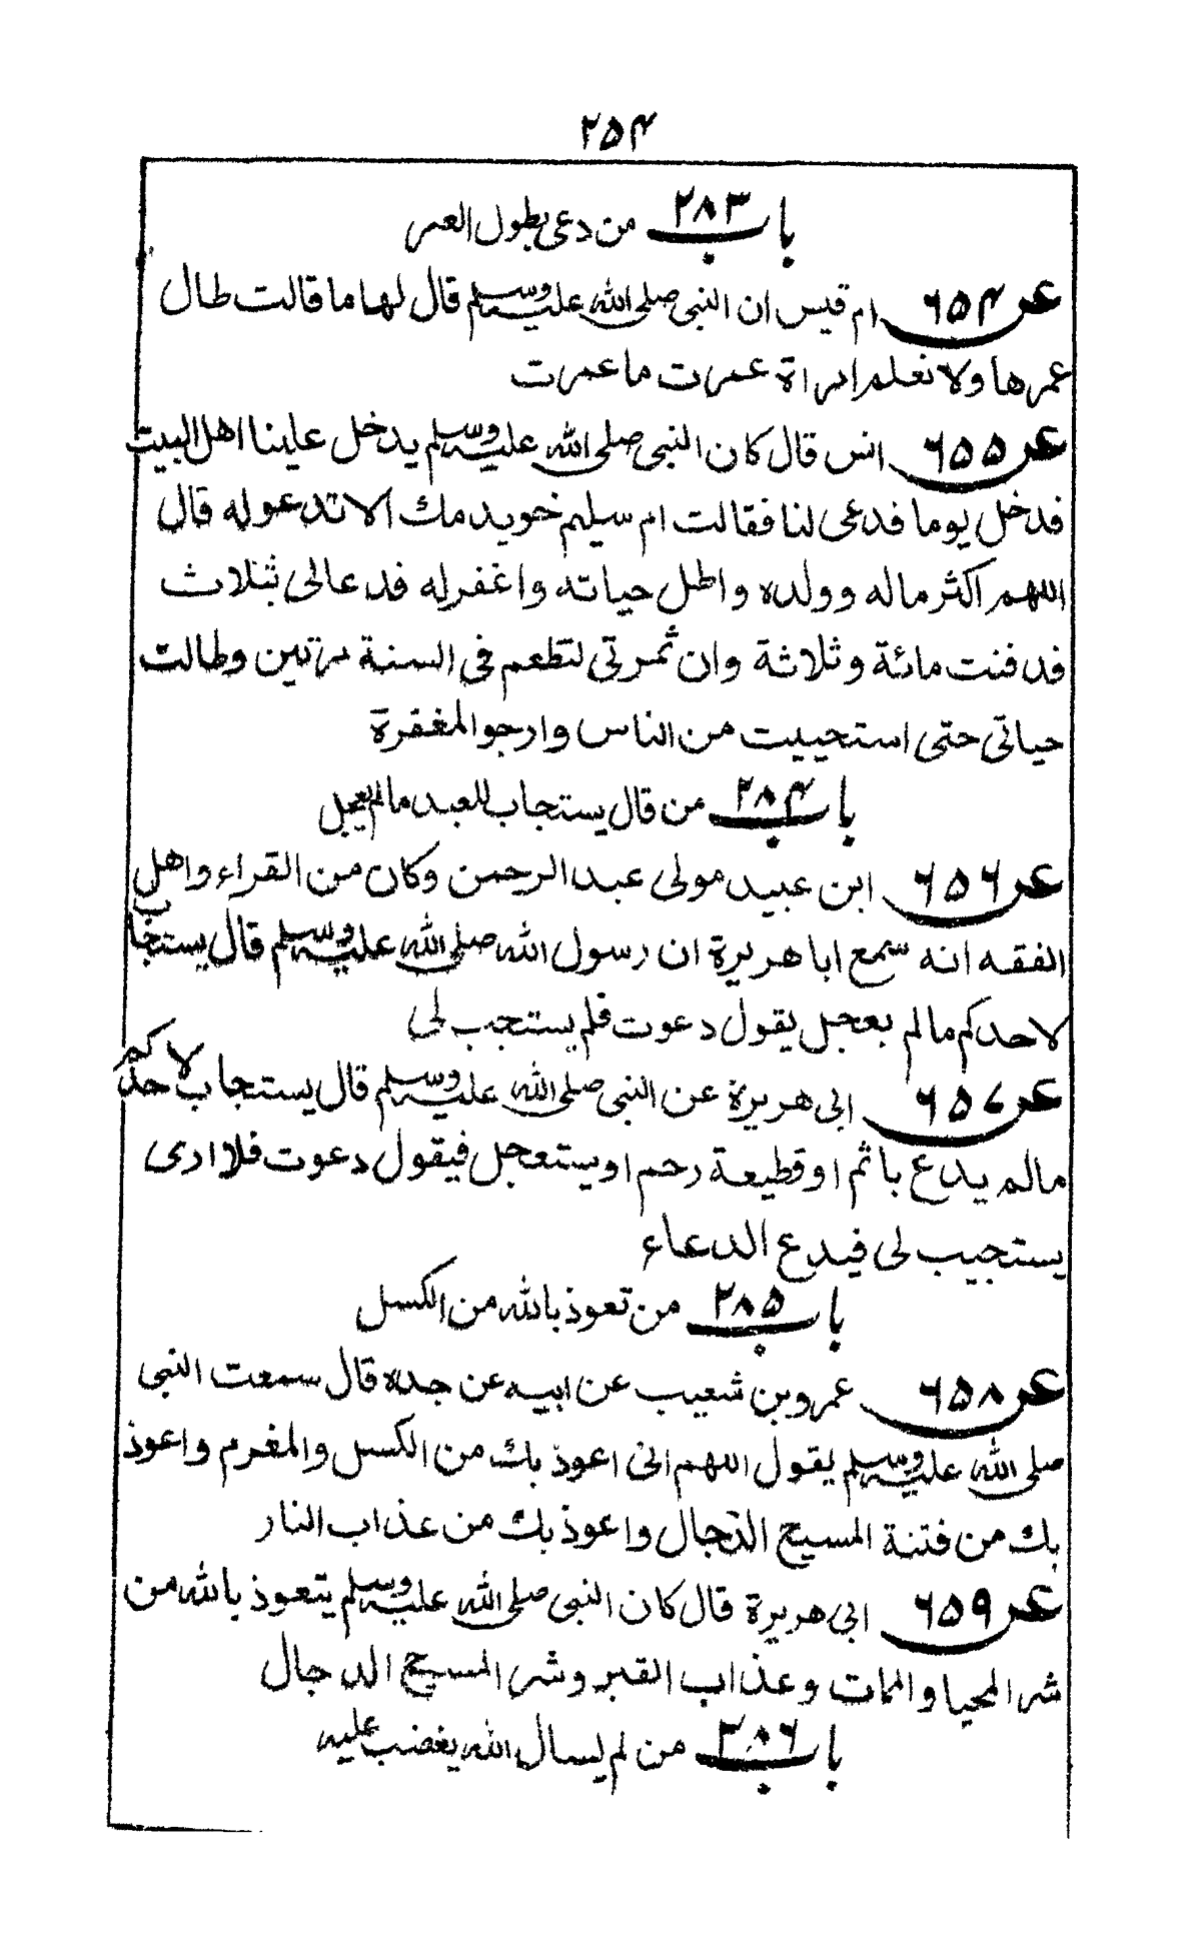 ۲۵۴
باب ۲۸۳ من دعى بطول العمر
عن ۶۵۴ ام قيس ان النبى صلى الله عليه وسلم قال لها ما قالت طال
عمرها ولا نعلم امراة عمرت ما عمرت
عن ۶۵۵ انس قال كان النبى صلى الله عليه وسلم يدخل علينا اهل البيت
فدخل يوما فدعى لنا فقالت ام سليم خويدمك الا تدعو له قال
اللهم اكثر ماله وولده واطل حياته واغفر له فدعا لى بثلاث
فدفنت مائة وثلاثة وان ثمرتى لتطعم فى السنة مرتين وطالت
حياتى حتى استحييت من الناس وارجو المغفرة
باب ۲۸۴ من قال يستجاب للعبد ما لم يعجل
عن ۶۵۶ ابن عبيد مولى عبد الرحمن وكان من القراء واهل
الفقه انه سمع ابا هريرة ان رسول الله صلى الله عليه وسلم قال يستجاب
لاحدكم ما لم يعجل يقول دعوت فلم يستجب لى
عن ۶۵۷ ابى هريرة عن النبى صلى الله عليه وسلم قال يستجاب لاحدكم
ما لم يدع باثم او قطيعة رحم او يستعجل فيقول دعوت فلا ارى
يستجيب لى فيدع الدعاء
باب ۲۸۵ من تعوذ بالله من الكسل
عن ۶۵۸ عمرو بن شعيب عن ابيه عن جده قال سمعت النبى
صلى الله عليه وسلم يقول اللهم انى اعوذ بك من الكسل والمغرم واعوذ
بك من فتنة المسيح الدجال واعوذ بك من عذاب النار
عن ۶۵۹ ابى هريرة قال كان النبى صلى الله عليه وسلم يتعوذ بالله من
شر المحيا والممات وعذاب القبر وشر المسيح الدجال
باب ۲۸۶ من لم يسال الله يغضب عليه